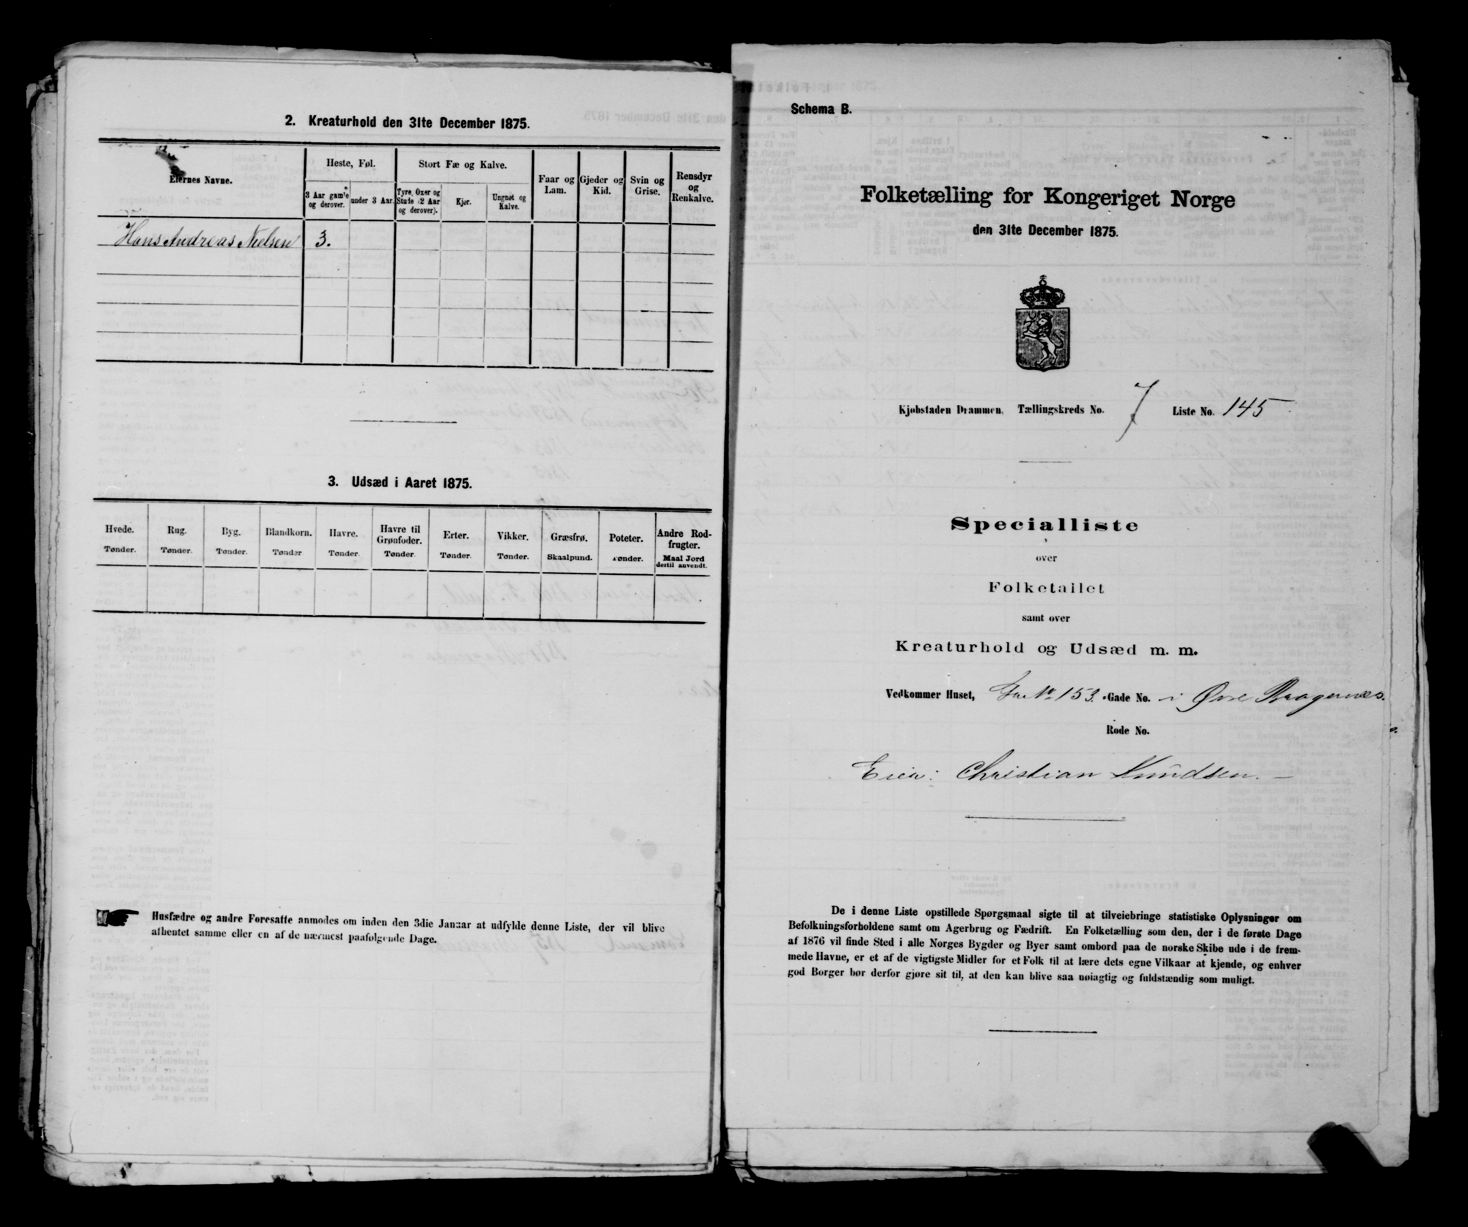 2. Kreaturhold den 31te December 1875.
Eiernes Navne.
Heste, Føl.
Stort Fæ og Kalve.
Faar og Lam.
Gjeder og Kid.
Svin og Grise.
Rensdyr og Renkalve.
3 Aar gamle og derover.
under 3 Aar.
Tyre, Oxer og Stude (2 Aar og derover).
Kjør.
Ungnøt og Kalve.
Hans Andreas Nielsen 3.
3. Udsæd i Aaret 1875.
Hvede. Rug. Byg. Blandkorn. Havre. Havre til Grønfoder. Erter. Vikker. Græsfrø. Poteter. Andre Rodfrugter.
Tønder. Tønder. Tønder. Tønder Tønder. Tønder. Tønder. Tønder. Skaalpund. Tønder. Maal Jord dertil anvendt.
Husfædre og andre Foresatte anmodes om inden den 3die Januar at udfylde denne Liste, der vil blive
afhentet samme eller en af de nærmest paafølgende Dage.
Schema B.
Folketælling for Kongeriget Norge
den 31te December 1875.
Kjøbstaden Drammen. Tællingskreds No. 7 Liste No. 145
Specialliste
over
Folketallet
samt over
Kreaturhold og Udsæd m. m.
Vedkommer Huset, No 153. Gade No. i Øvre Bragernes.
Rode No.
Eier: Christian Knudsen.
De i denne Liste opstillede Spørgsmaal sigte til at tilveiebringe statistiske Oplysninger om
Befolkningsforholdene samt om Agerbrug og Fædrift. En Folketælling som den, der i de første Dage
af 1876 vil finde Sted i alle Norges Bygder og Byer samt ombord paa de norske Skibe ude i de frem-
mede Havne, er et af de vigtigste Midler for et Folk til at lære dets egne Vilkaar at kjende, og enhver
god Borger bør derfor gjøre sit til, at den kan blive saa nøiagtig og fuldstændig som muligt.